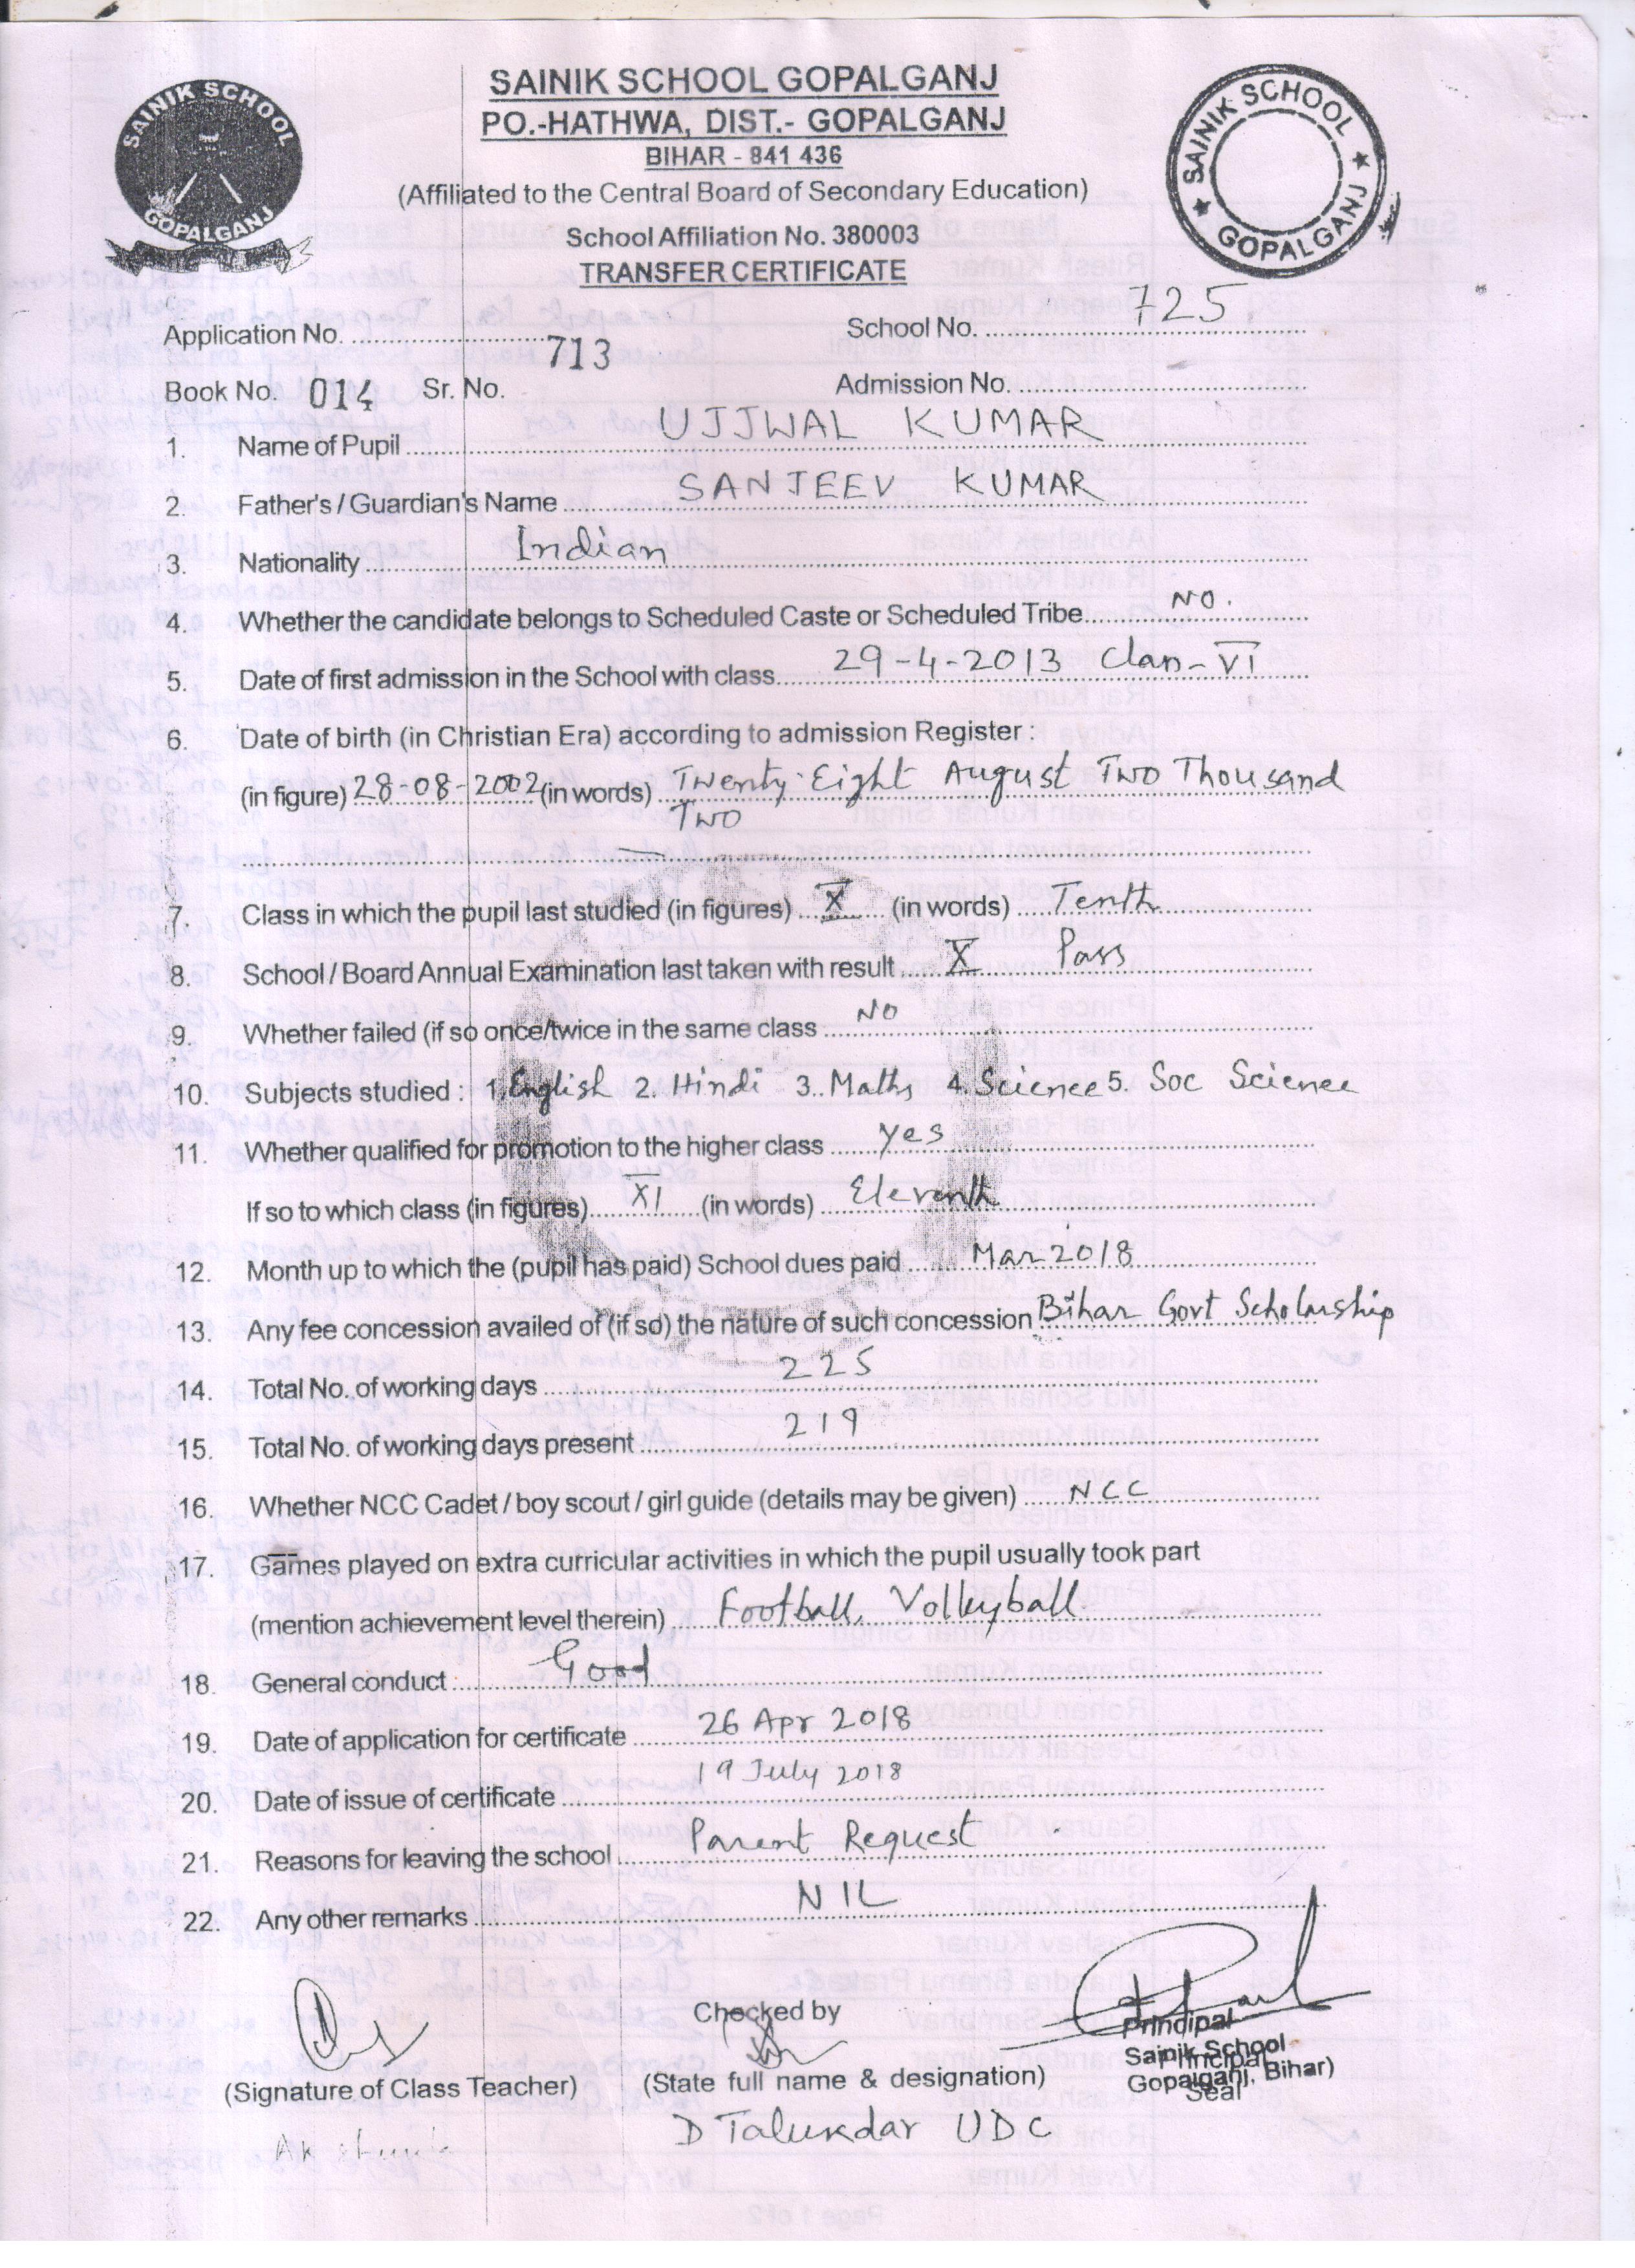 SAINIK SCHOOL GOPALGANJ
SAINIK SCHOOL GOPALGANJ
PO.-HATHWA, DIST.- GOPALGANJ
BIHAR - 841 436
(Affiliated to the Central Board of Secondary Education)
School Affiliation No. 380003
TRANSFER CERTIFICATE
SAINIK SCHOOL ★ GOPALGANJ ★
Application No. ........................ School No. 725
Book No. 014 Sr. No. 713 Admission No. ........................
1. Name of Pupil UJJWAL KUMAR
2. Father's / Guardian's Name SANJEEV KUMAR
3. Nationality Indian
4. Whether the candidate belongs to Scheduled Caste or Scheduled Tribe NO.
5. Date of first admission in the School with class 29-4-2013 Class-VI
6. Date of birth (in Christian Era) according to admission Register :
(in figure) 28-08-2002 (in words) Twenty-Eight August Two Thousand
Two
7. Class in which the pupil last studied (in figures) X (in words) Tenth
8. School / Board Annual Examination last taken with result X Pass
9. Whether failed (if so once/twice in the same class NO
10. Subjects studied : 1. English 2. Hindi 3. Maths 4. Science 5. Soc Science
11. Whether qualified for promotion to the higher class yes
If so to which class (in figures) XI (in words) Eleventh
12. Month up to which the (pupil has paid) School dues paid Mar 2018
13. Any fee concession availed of (if so) the nature of such concession Bihar Govt Scholarship
14. Total No. of working days 225
15. Total No. of working days present 219
16. Whether NCC Cadet / boy scout / girl guide (details may be given) NCC
17. Games played on extra curricular activities in which the pupil usually took part
(mention achievement level therein) Football, Volleyball
18. General conduct Good
19. Date of application for certificate 26 Apr 2018
20. Date of issue of certificate 19 July 2018
21. Reasons for leaving the school Parent Request
22. Any other remarks NIL
Checked by
(Signature of Class Teacher) (State full name & designation)
D Talukdar UDC
Principal
Sainik School
Gopalganj, Bihar)
Principal
Seal